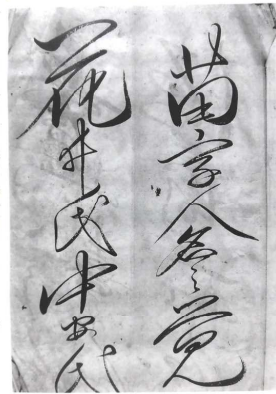 苗字人名之覚
花井氏中安氏